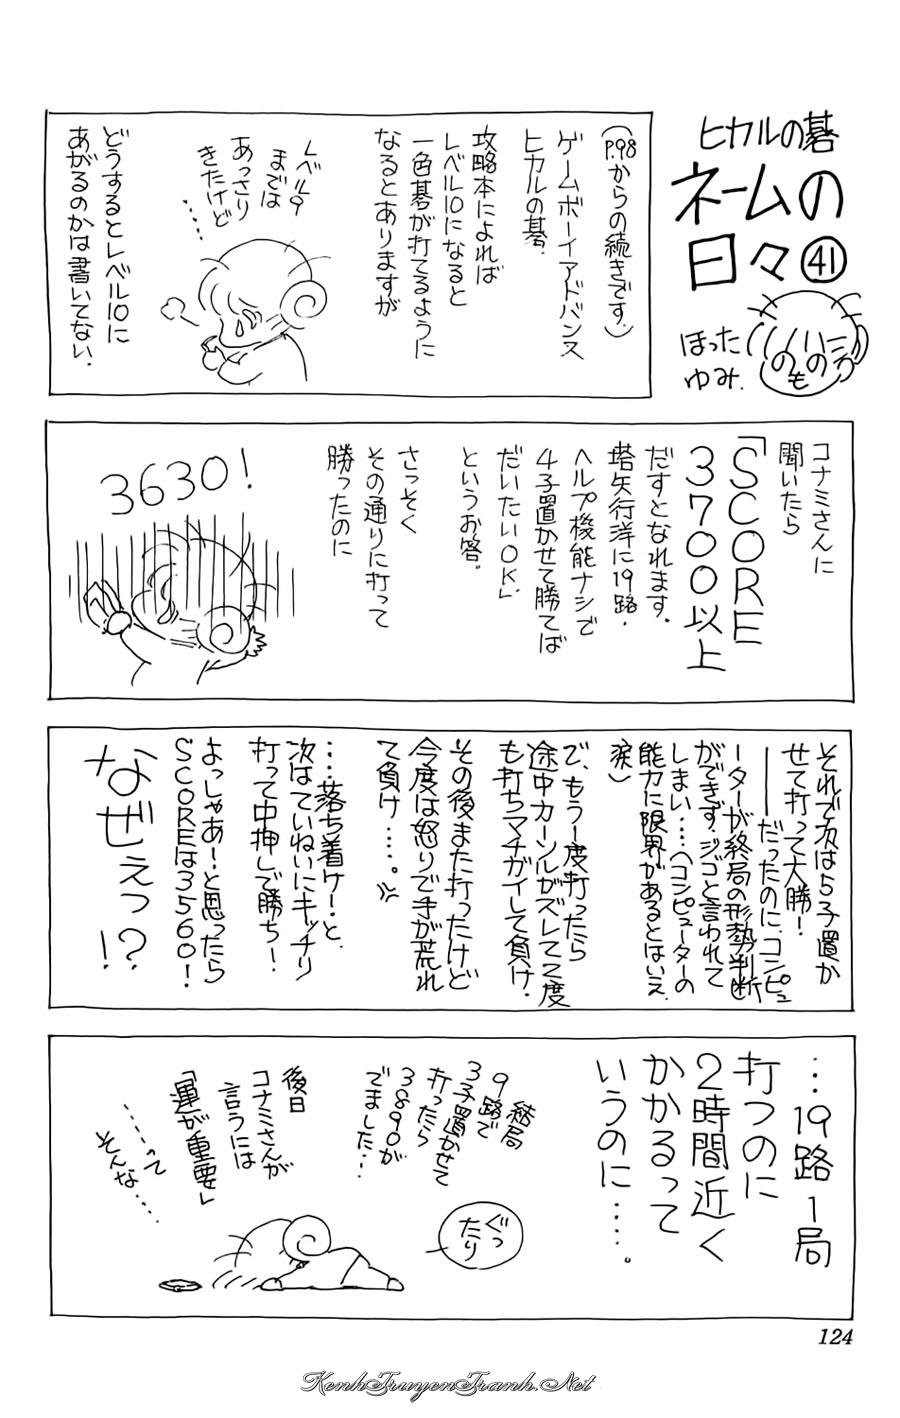 ヒカルの碁
ネームの
日々㊶
ほった
ゆみ.
(P.98からの続きです.)
ゲームボーイアドバンス
ヒカルの碁.
攻略本によれば
レベル10になると
一色碁が打てるように
なるとありますが
レベル9
までは
あっさり
きたけど
……
どうするとレベル10に
あがるのかは書いてない.
コナミさんに
聞いたら
「SCORE
3700以上
だすとなれます.
塔矢行洋に19路.
ヘルプ機能ナシで
4子置かせて勝てば
だいたいOK」
というお答.
さっそく
その通りに打って
勝ったのに
3630!
それで次は5子置か
せて打って大勝!
――だったのに、コンピュ
ーターが終局の形勢判断
ができず.ジゴと言われて
しまい……(コンピューターの
能力に限界があるとはいえ
涙)
で、もう1度打ったら
途中カーソルがズレて2度
も打ちマチガイして負け.
その後また打ったけど
今度は怒りで手が荒れ
て負け……。
…落ち着け!と、
次はていねいにキッチリ
打って中押しで勝ち!
よっしゃあ!と思ったら
SCOREは3560!
なぜぇっ!?
…19路1局
打つのに
2時間近く
かかるって
いうのに……。
結局
9路で
3子置かせて
打ったら
3890が
でました…
ぐっ
たり
後日
コナミさんが
言うには
「運が重要」
……って
そんな…
124
KenhTruyenTranh.Net